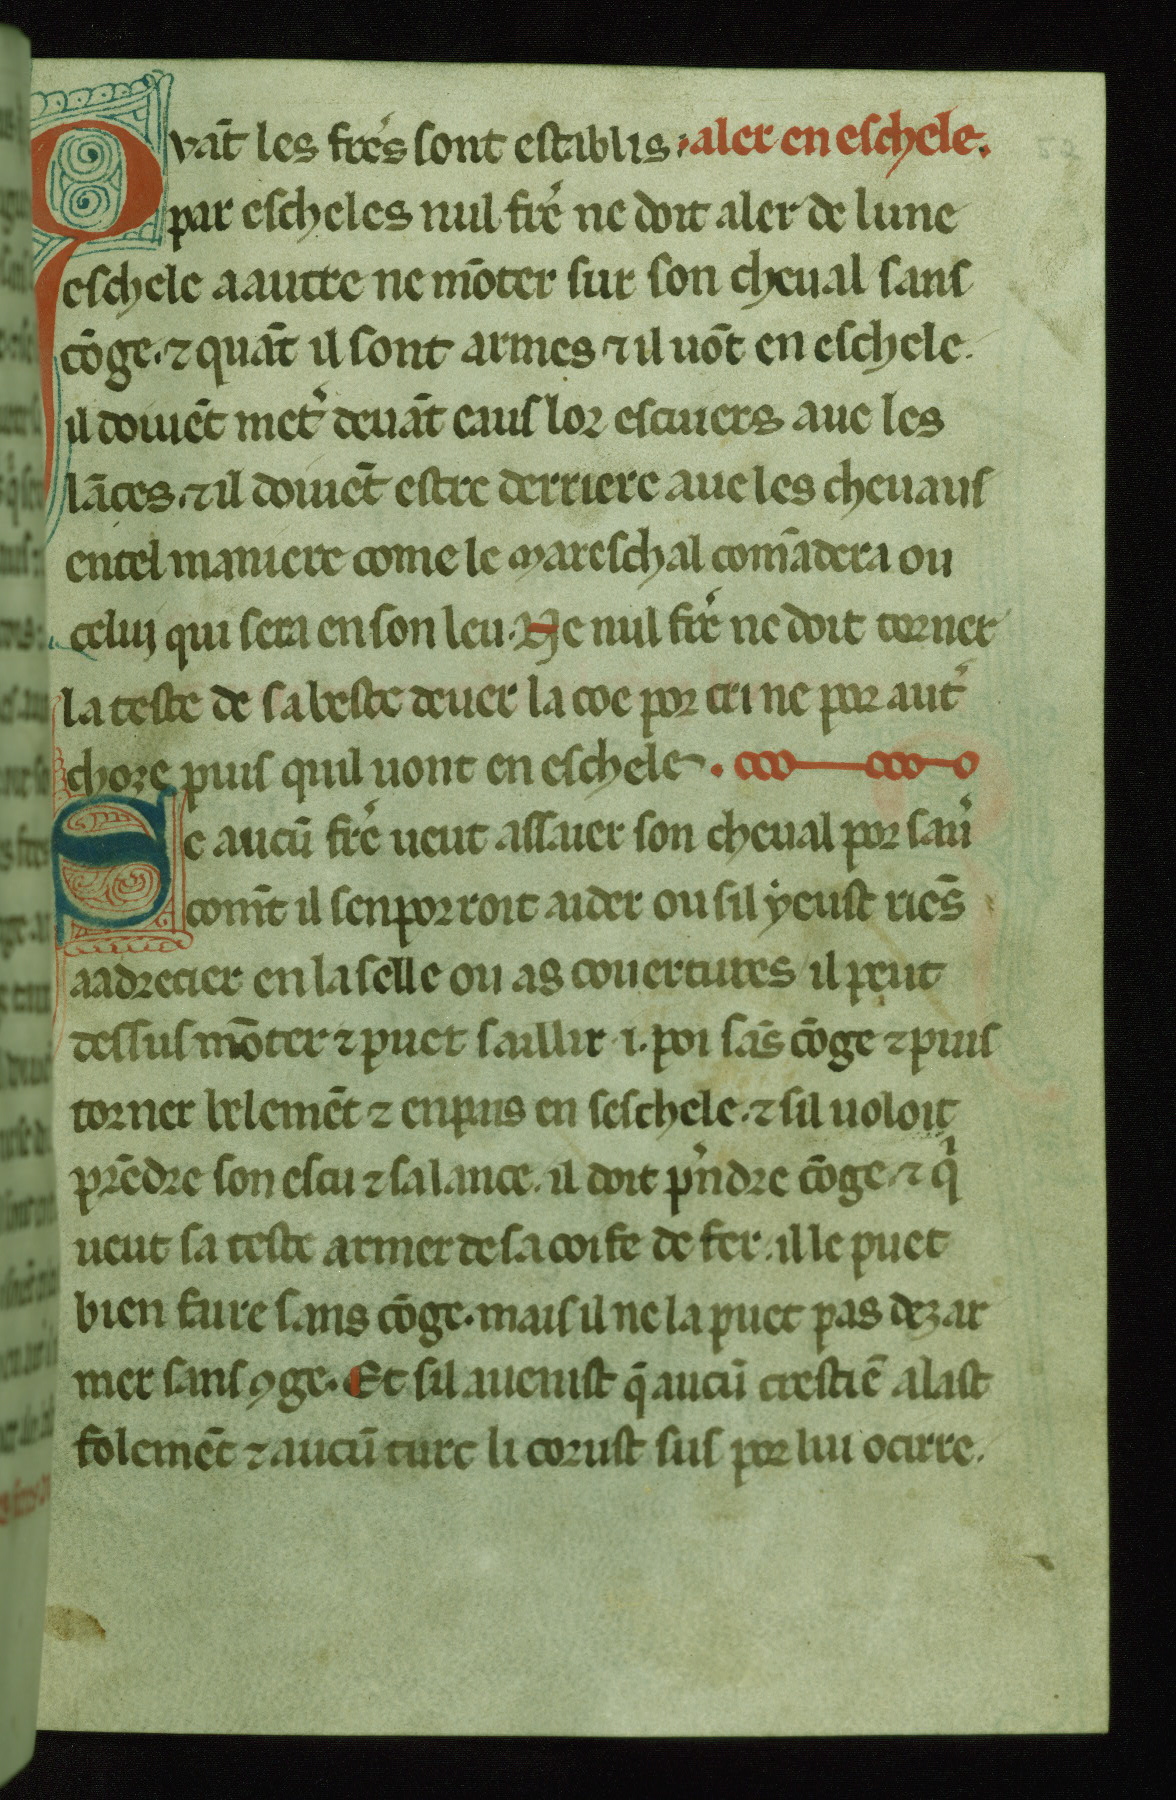 Quāt les fre᷒s sont establis · aler en eschele.
par escheles nul fre᷒ ne doit aler de lune
eschele a autre ne mōter sur son cheual sans
cōge. ⁊ quāt il sont armes ⁊ il uōt en eschele.
il doiuēt met᷒ deuāt eaus lor escuiers aue les
lāces. ⁊ il doiuēt estre derriere aue les cheuaus
en tel maniere come le mareschal comādera ou
celui qui sera en son leu. Ne nul fre᷒ ne doit torner
la teste de sa beste deuer la coe por cri ne por aut᷒
choze puis quil uont en eschele.
Se aucū fre᷒ ueut assaier son cheual por sau᷒
comt̄ il sen porroit aider ou sil y eust riēs
a adrecier en la selle ou as couertures il peut
dessus mōter ⁊ puet saillir .i. poi sās cōge ⁊ puis
torner belemēt ⁊ en pais en seschele. ⁊ sil uoloit
prēdre son escu ⁊ sa lance. il doit p᷒ndre cōge. ⁊ qⁱ
ueut sa teste armer de sa coife de fer. il le puet
bien faire sans cōge. mais il ne la puet pas dezar
mer sans ꝯge. Et sil auenist q̄ aucū crestiē alast
folemēt ⁊ aucū turc li corust sus por lui ocirre.